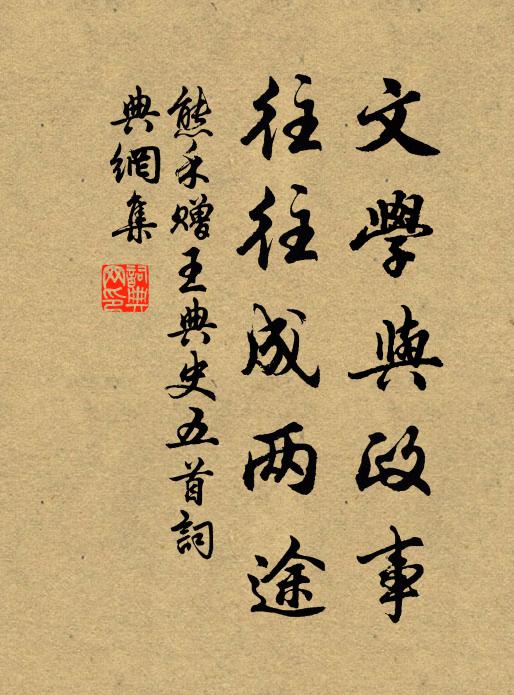 文學與政事
往往成两途
熊禾贈王典史五首詞
典網集
詞典网印